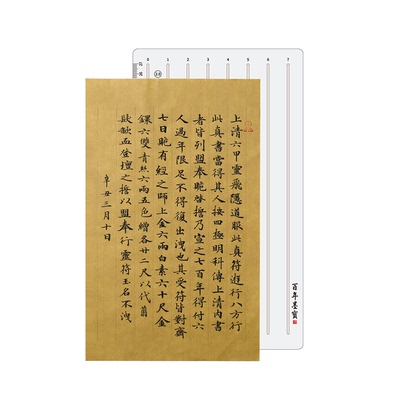 上清六甲靈飛隱道服此真符遊行八方行
此真書當得其人按四極明科傳上清內書
者皆列盟奉贄啓誓乃宣之七百年得付六
人過年限足不得復出洩也其受符皆對齋
七日贄有經之師上金六兩白素六十尺金
鐶六雙青絲六兩五色繒各廿二尺以代翦
歃血登壇之誓以盟奉行靈符玉名不洩
辛丑三月十日
0 1 2 3 4 5 6 7
百年墨寶